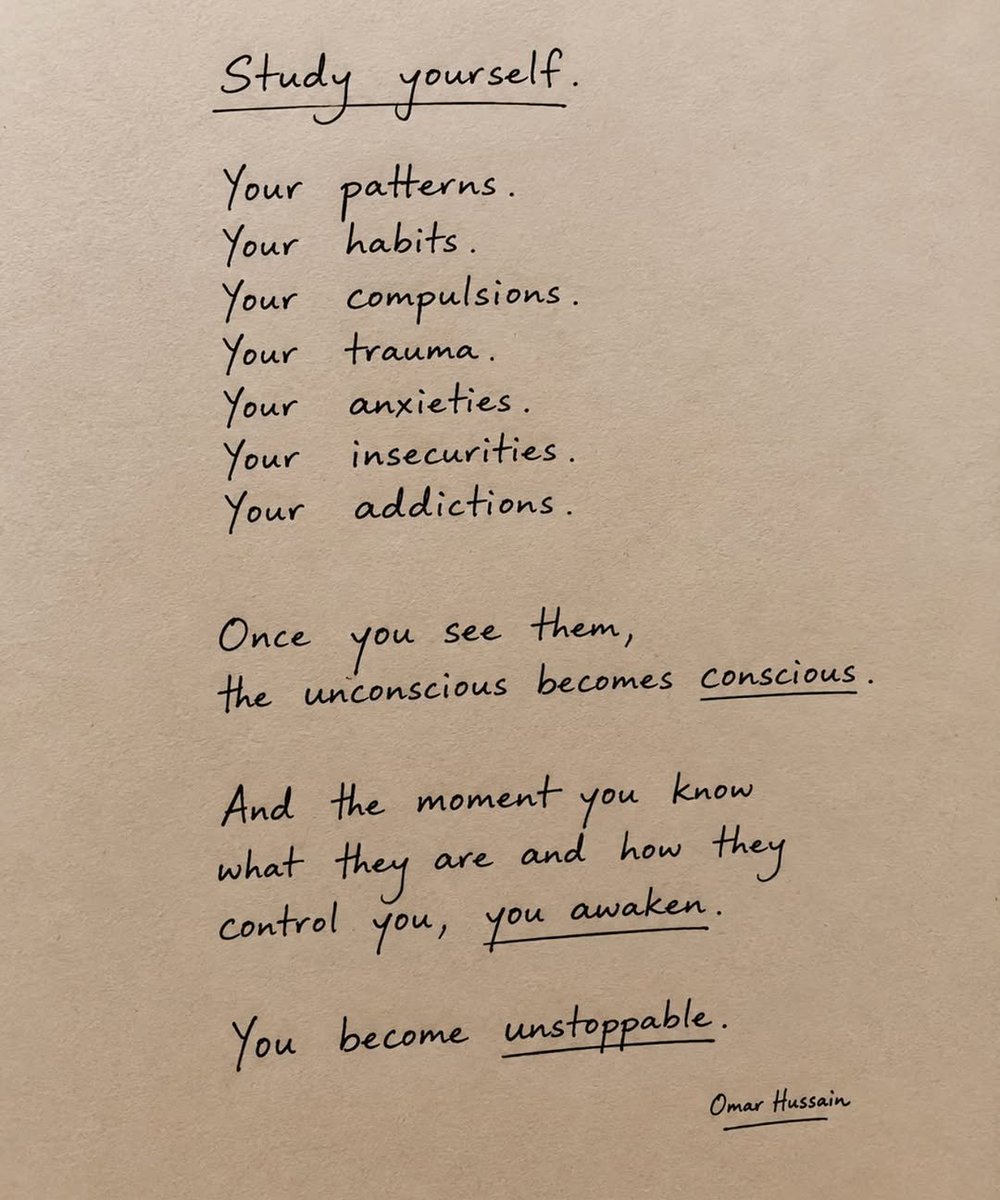 Study yourself.
Your patterns.
Your habits.
Your compulsions.
Your trauma.
Your anxieties.
Your insecurities.
Your addictions.
Once you see them,
the unconscious becomes conscious.
And the moment you know
what they are and how they
control you, you awaken.
You become unstoppable.
Omar Hussain